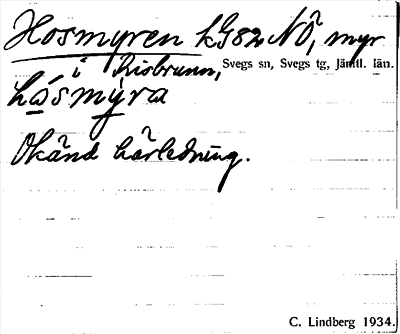 Hosmyren kG82 NÖ, myr
i Risbrunn, Svegs sn, Svegs tg, Jämtl. län.
håsmýra
Okänd härledning.
C. Lindberg 1934.